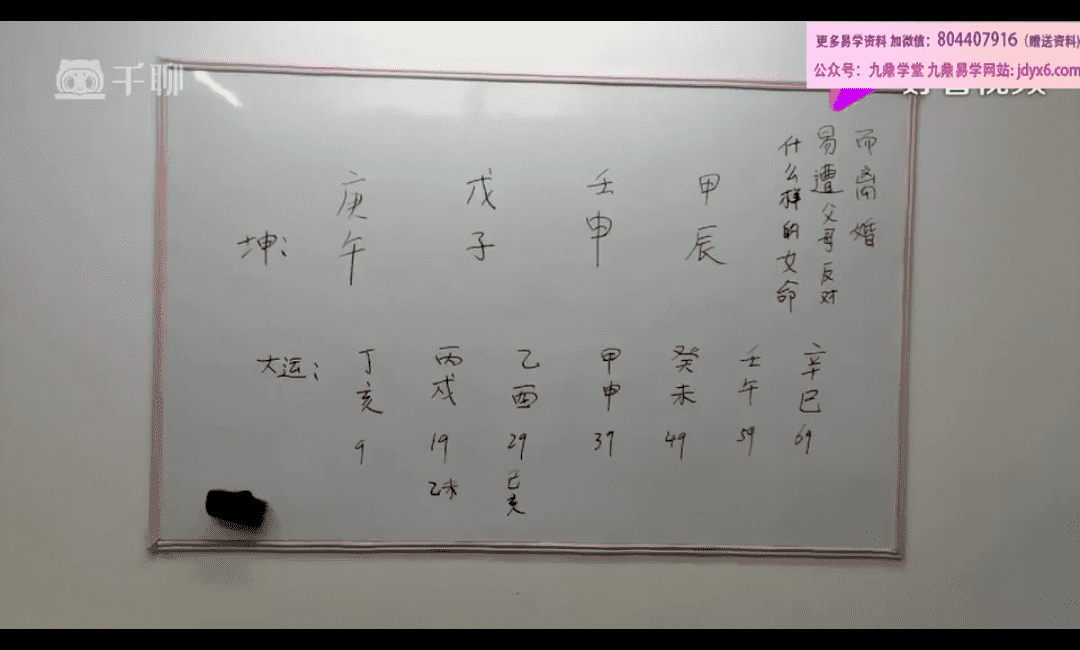 更多易学资料 加微信：804407916（赠送资料）
公众号：九鼎学堂 九鼎易学网站: jdyx6.com
千聊
什么样的女命
易遭父母反对
而离婚
坤： 庚午 戊子 壬申 甲辰
大运； 丁亥 丙戌 乙酉 甲申 癸未 壬午 辛巳
9 19 29 39 49 59 69
乙未 己亥